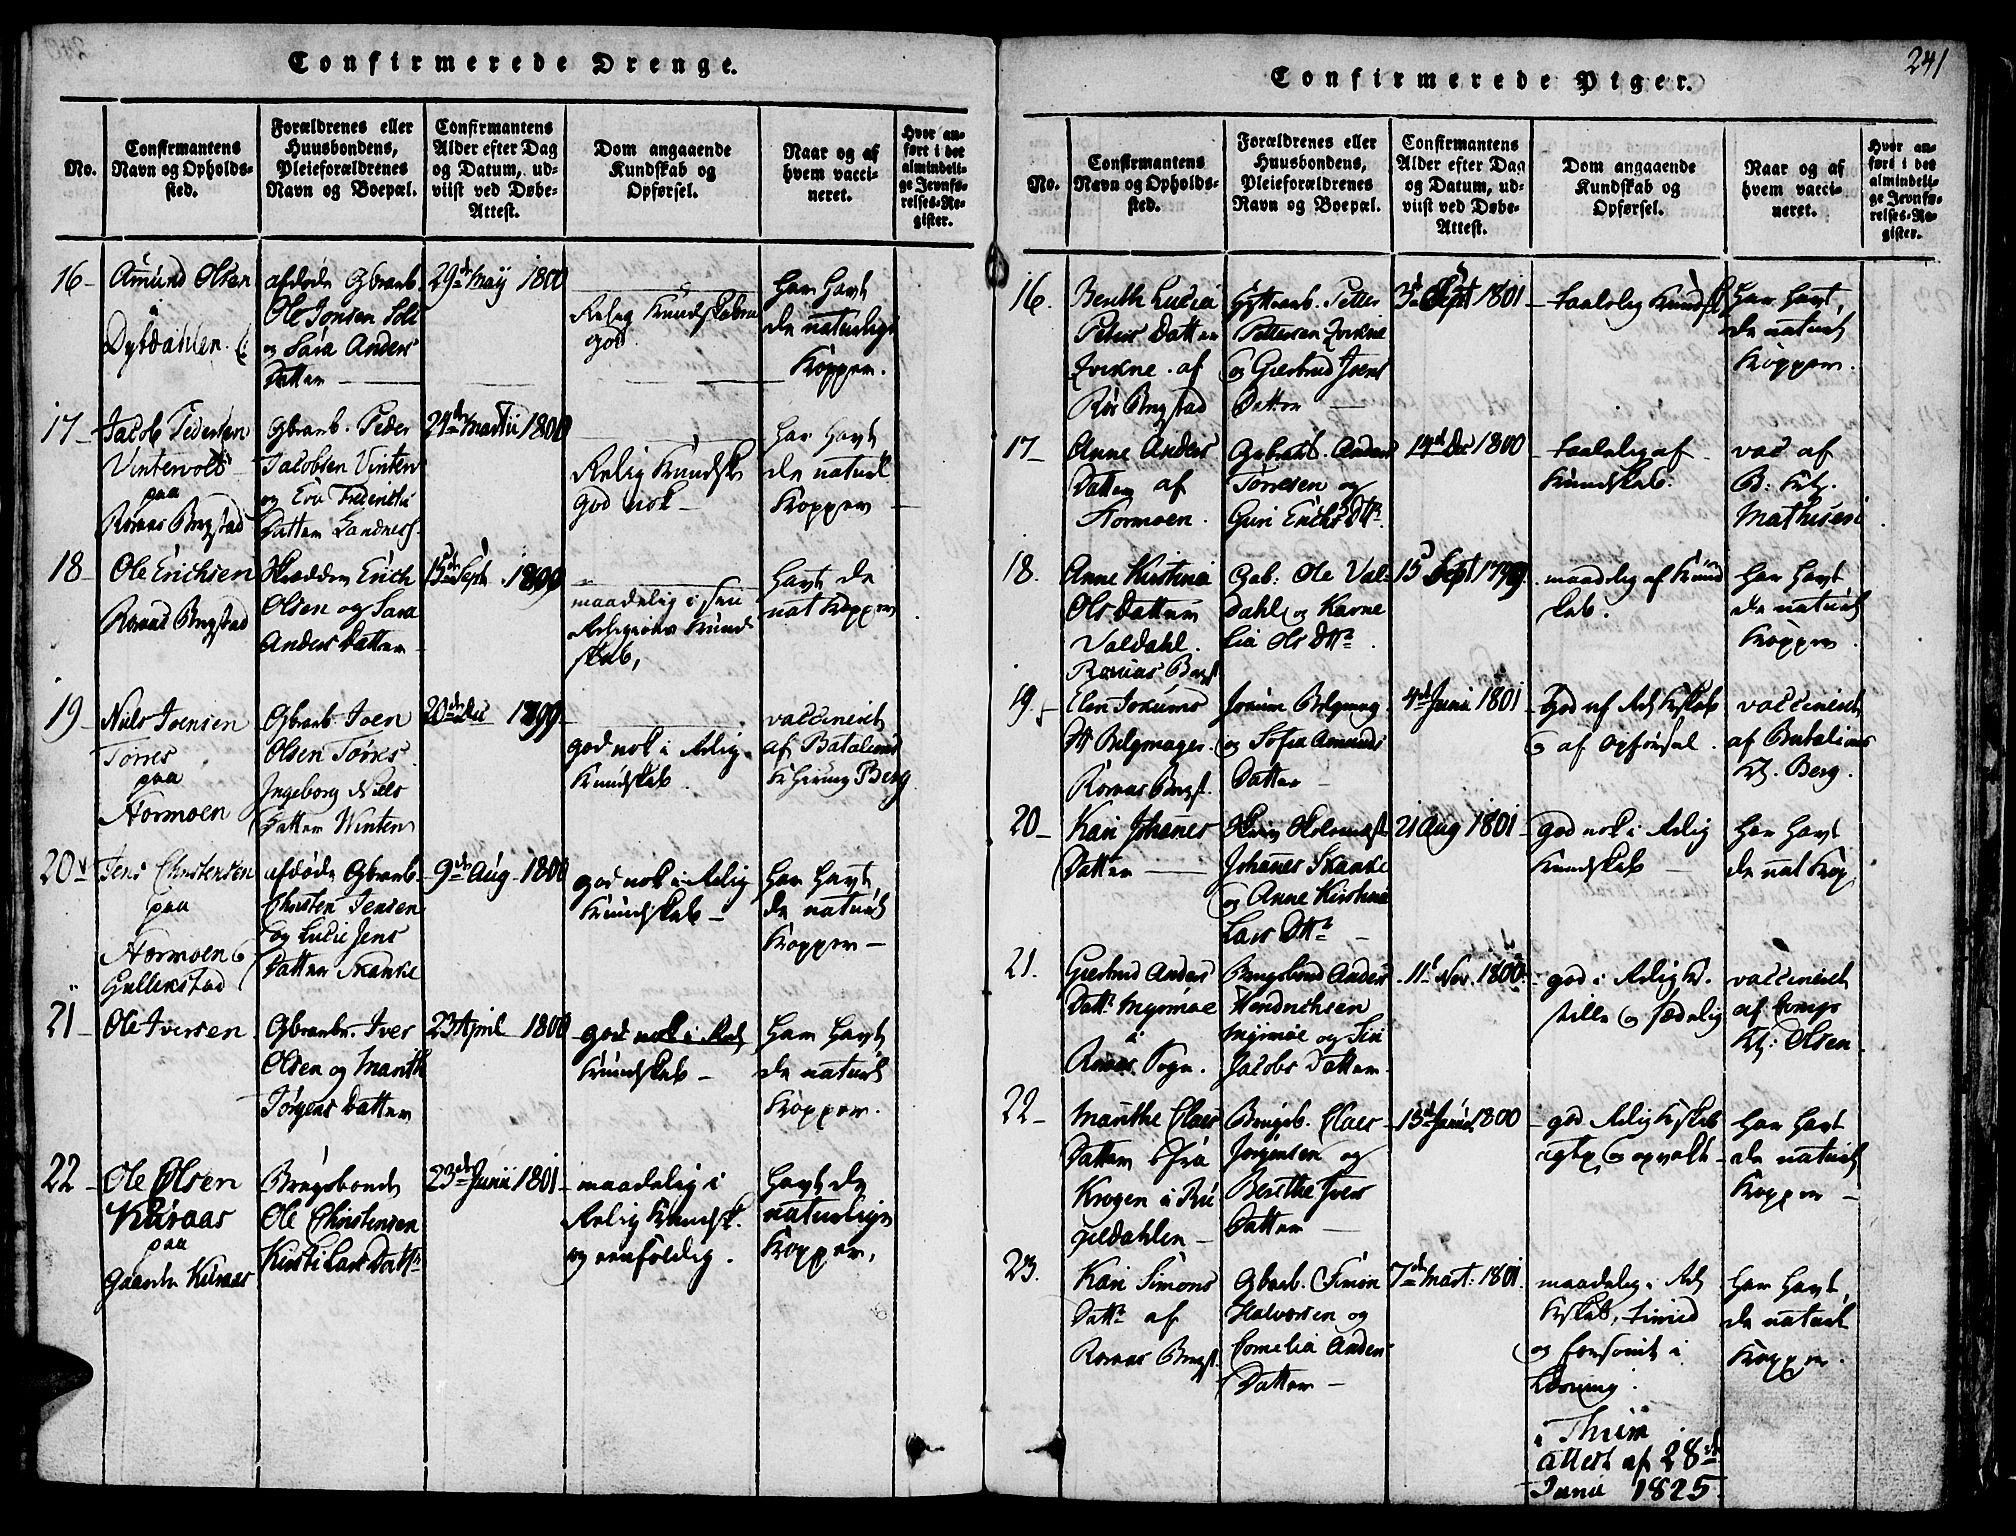 241
Confirmerede Drenge.
No.
Confirmantens
Navn og Opholds-
sted.
Forældrenes eller
Huusbondens,
Pleieforældrenes
Navn og Boepæl.
Confirmantens
Alder efter Dag
og Datum, ud-
viist ved Døbe-
Attest.
Dom angaaende
Kundskab og
Opførsel.
Naar og af
hvem vacci-
neret.
Hvor an-
ført i det
almindeli-
ge Jevnfø-
relses-Re-
gister.
16 -
Amund Olsen
i
Dybdahlen
afdøde Gbrarb.
Ole Jonsen
og Sara Anders
Datter
29de May 1800
Relig Kundskaben
god
har havt
de naturlige
Kopper.
17 -
Jacob Pedersen
Vintervold
paa
Røraas Bergstad
Gbrarb. Peder
Jacobsen Vinter
og Eva Frederichs
Datter Landnes
24de Martii 1800
Relig Kundsk
god nok -
har havt
de naturl
Kopper -
18 -
Ole Erichsen
Røraas Bergstad
Skrædder Erich
Olsen og Sara
Anders Datter
15de Septr. 1799
maadelig i sin
Religions Kund
skab,
havt de
nat Kopper
19
Niels Joensen
Torres
paa
Stormoen
Gbrarb Joen
Olsen Torres
Ingeborg Niels
Datter Winter
20de Dec 1799
god nok i Relig
Kundskab
vaccineret
af Batalions
Chirurg Berg
20
Jens Christensen
paa
Stormoen
Gullikstad
afdøde Gbrarb.
Christen Jensen
og Lucie Jens
Datter Skancke
9de Aug - 1800
god nok i Relig
Kundskab -
har havt
de naturl
Kopper -
21 -
Ole Iversen
Gbrarbr. Iver
Olsen og Marith
Jørgens Datter
23 April 1800
god nok i Rel
Kundskab -
har havt
de naturl
Kopper.
22 -
Ole Olsen
Kuraas
paa
Gaarden Kuraas
Bergsbonde
Ole Christensen
Kirsti Lars Dattr
23de Junii 1801
maadelig i
Relig Kundsk.
og eenfoldig.
havt de
naturlige
Kopper,
Confirmerede Piger.
No.
Confirmantens
Navn og Opholds-
sted.
Forældrenes eller
Huusbondens,
Pleieforældrenes
Navn og Boepæl.
Confirmantens
Alder efter Dag
og Datum, ud-
viist ved Døbe-
Attest.
Dom angaaende
Kundskab og
Opførsel.
Naar og af
hvem vacci-
neret.
Hvor an-
ført i det
almindeli-
ge Jevnfø-
relses-Re-
gister.
16.
Berith Lucia
Peters Datter
af
Rør Bergstad
Hyttearb. Petter
Pettersen
og Giertrud Joens
Datter
3de Sept 1801
taalelig Kundsk
har havt
de naturl
Kopper.
17 -
Anne Anders
Datter af
Stormoen.
Gbrarb. Anders
Torresen og
Guri Erichs Dtr
14de Dec 1800
taalelig af
Kundskab.
vac af
B: Chir.
Mathiesen
18.
Anne Kirstina
Ols Datter
Valdahl.
Røraas Bergst
Gab: Ole Val-
dahl og Karne
lia Ols Dtr
15 Sept 1799.
maadelig af Kund
skab.
har havt
de naturl
Kopper
19.
Elen Jokums
D Belgmager
Røraas Bergst.
Jokum Belgmag
og Sofia Amunds
Datter -
4de Junii 1801
god af Rel Kskab
og af Opførsel.
vaccineret
af Batalions
Ch. Berg.
20 -
Kari Johanes
Datter
Johanes Skancke
og Anne Kirstina
Lars Dtr
21 Aug 1801
god nok i Relig
Kundskab -
har havt
de nat Kop
21.
Giertrud Anders
Dattr
i
Røraas Sogn.
Bergsbond Anders
Hendrichsen
og Siri
Jacobs Datter
11t Nov. 1800.
god i Relig K.
stille og sædelig
vaccineret
af Comp
Ch: Olsen.
22 -
Marithe Claes
Datter fra
Krogen i Ru
geldahlen -
Bergsb. Claes
Jørgensen og
Berithe Ivers
Datter -
15de Junii 1800
god Relig Kskab
og opvakt -
har havt
de naturl
Kopper -
23.
Kari Simons
Dattr af
Røraas Bergst.
Gbrarb. Simon
Halvorsen og
Cornelia Anders
Datter -
7de Mart: 1801.
maadelig i Rel
Kskab, timid
og forsømt i
Læsning.
i Thiim
attest af 28de
Junii 1825
har havt
de naturl
Kopper.